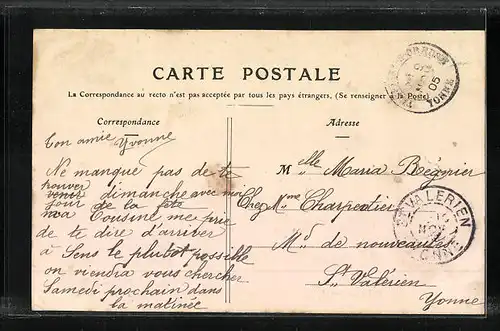 CARTE POSTALE
La Correspondance au recto n'est pas acceptée par tous les pays étrangers, (Se renseigner à la Poste)
Correspondance
Ton amie Yvonne
Ne manque pas de te
trouver dimanche avec moi
jour de la fête
moa Cousinel me prie
de te dire d'arriver
à Sens le plutôt possible
on viendra vous chercher
Samedi prochain dans
la matinée
Adresse
Melle Maria Régnier
Chez Mme Charpentier
Mde de nouveautés
St Valérien
Yonne
05
YONNE
ST VALERIEN
NOV
YONNE